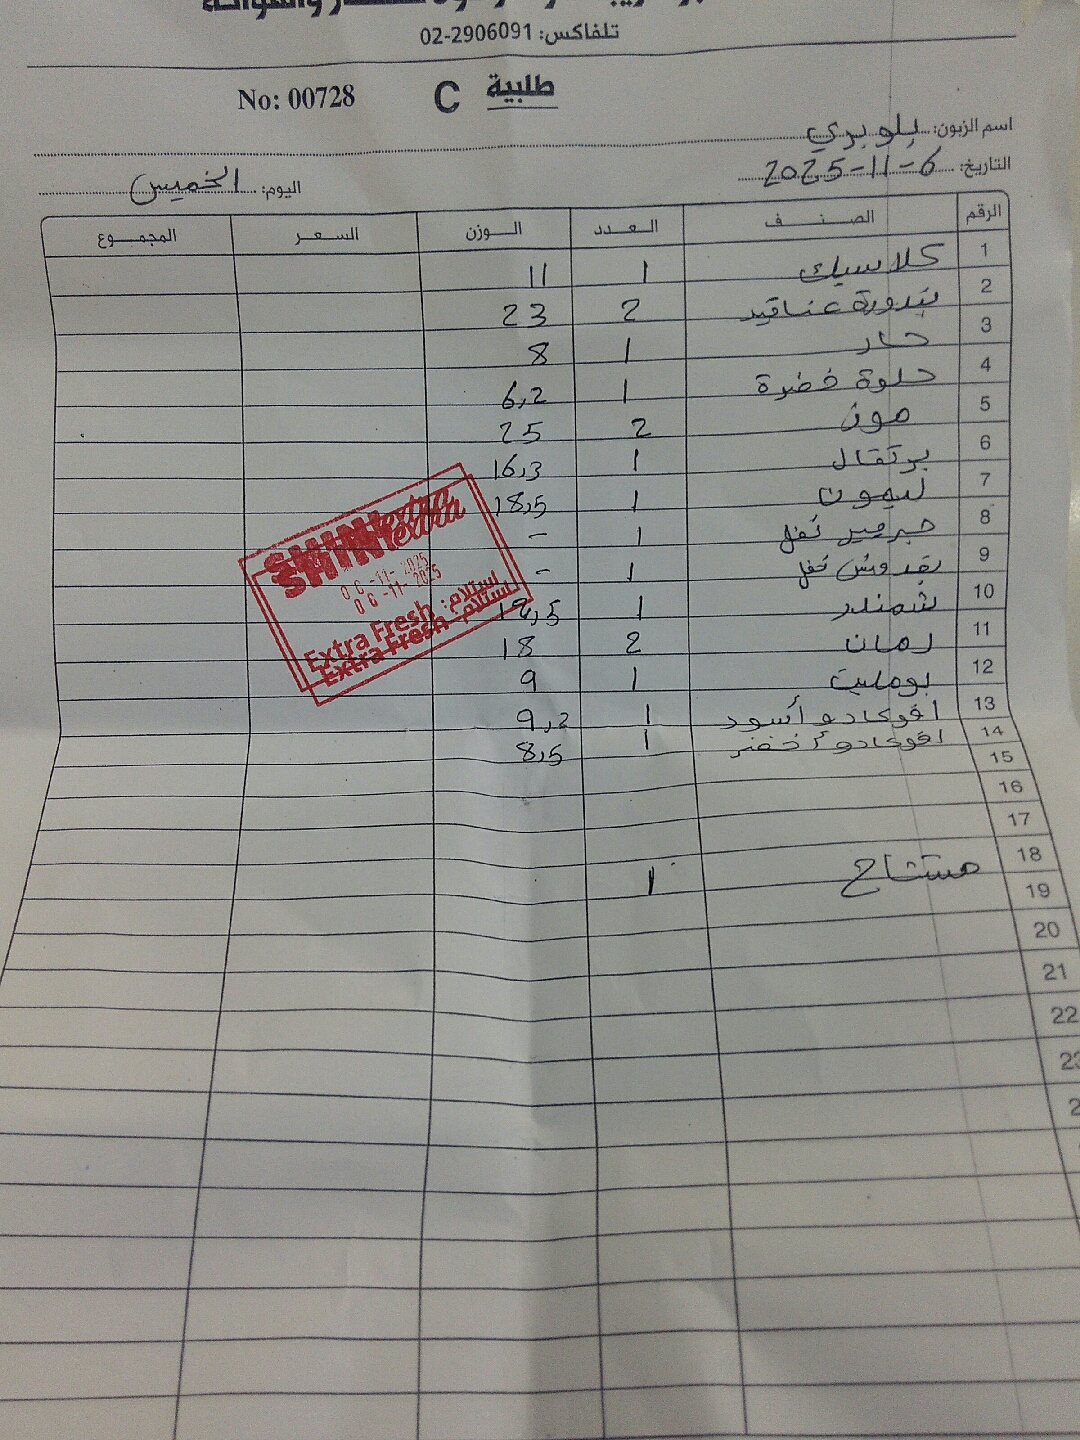 تلفاكس: 02-2906091
No: 00728 C طلبية
اسم الزبون: بلوبري
التاريخ: 2025-11-6
اليوم: الخميس
الرقم الصنف العدد الوزن السعر المجموع
1 كلاسيك 1 11
2 بندورة عناقيد 2 23
3 حار 1 8
4 حلوة خضرة 1 6,2
5 موز 2 25
6 برتقال 1 16,3
7 ليمون 1 18,5
8 جرجير نخل 1 -
9 بقدونس نخل 1 -
10 شمندر 1
11 رمان 2 18
12 بومليت 1 9
13 افوكادو أسود 1 9,2
14 افوكادو أخضر 1 8,5
15
16
17
18
مستشاح 1
19
20
21
22
SHINI extra
06-11-2025
استلام: Extra Fresh